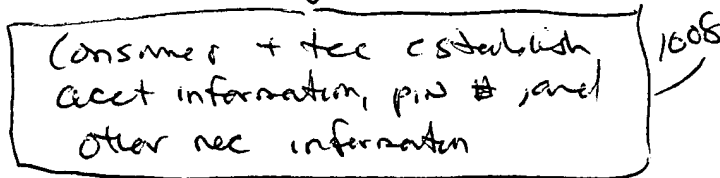 Consumer + tec establish
acct information, PIN #, and
other nec information
1008